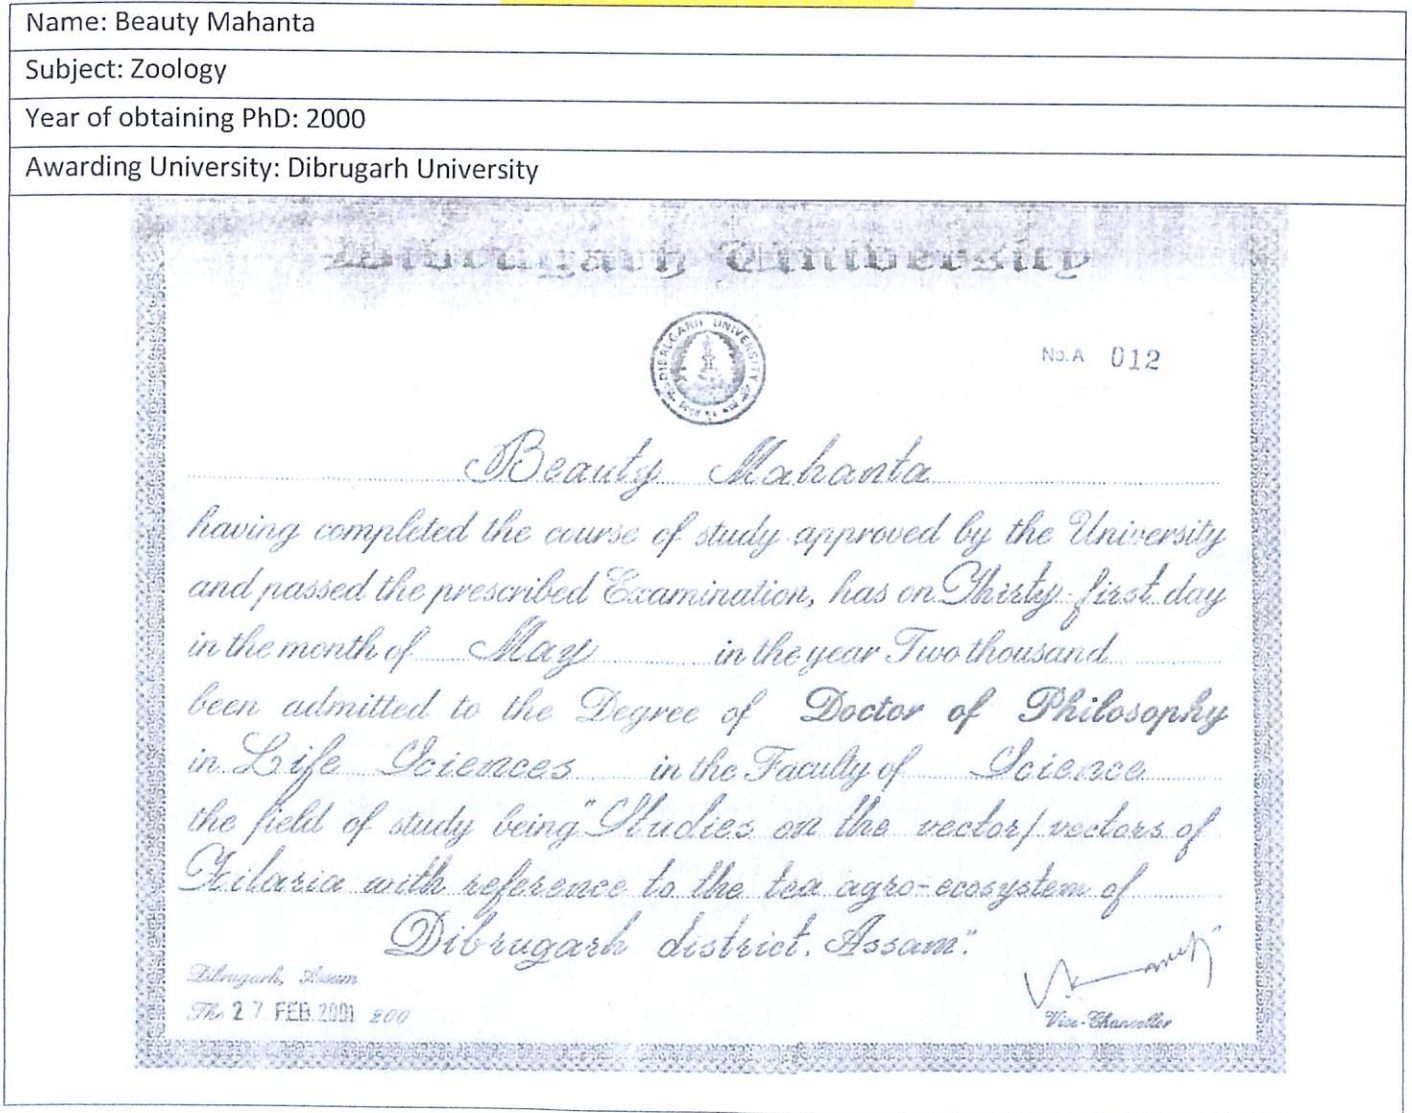 Name: Beauty Mahanta
Subject: Zoology
Year of obtaining PhD: 2000
Awarding University: Dibrugarh University
Dibrugarh University
DIBRUGARH UNIVERSITY
No. A 012
Beauty Mahanta
having completed the course of study approved by the University
and passed the prescribed Examination, has on Thirty-first day
in the month of May in the year Two thousand
been admitted to the Degree of Doctor of Philosophy
in Life Sciences in the Faculty of Science
the field of study being "Studies on the vector/vectors of
Filaria with reference to the tea agro-ecosystem of
Dibrugarh district. Assam".
Dibrugarh, Assam
The 27 FEB 2001 200
Vice-Chancellor